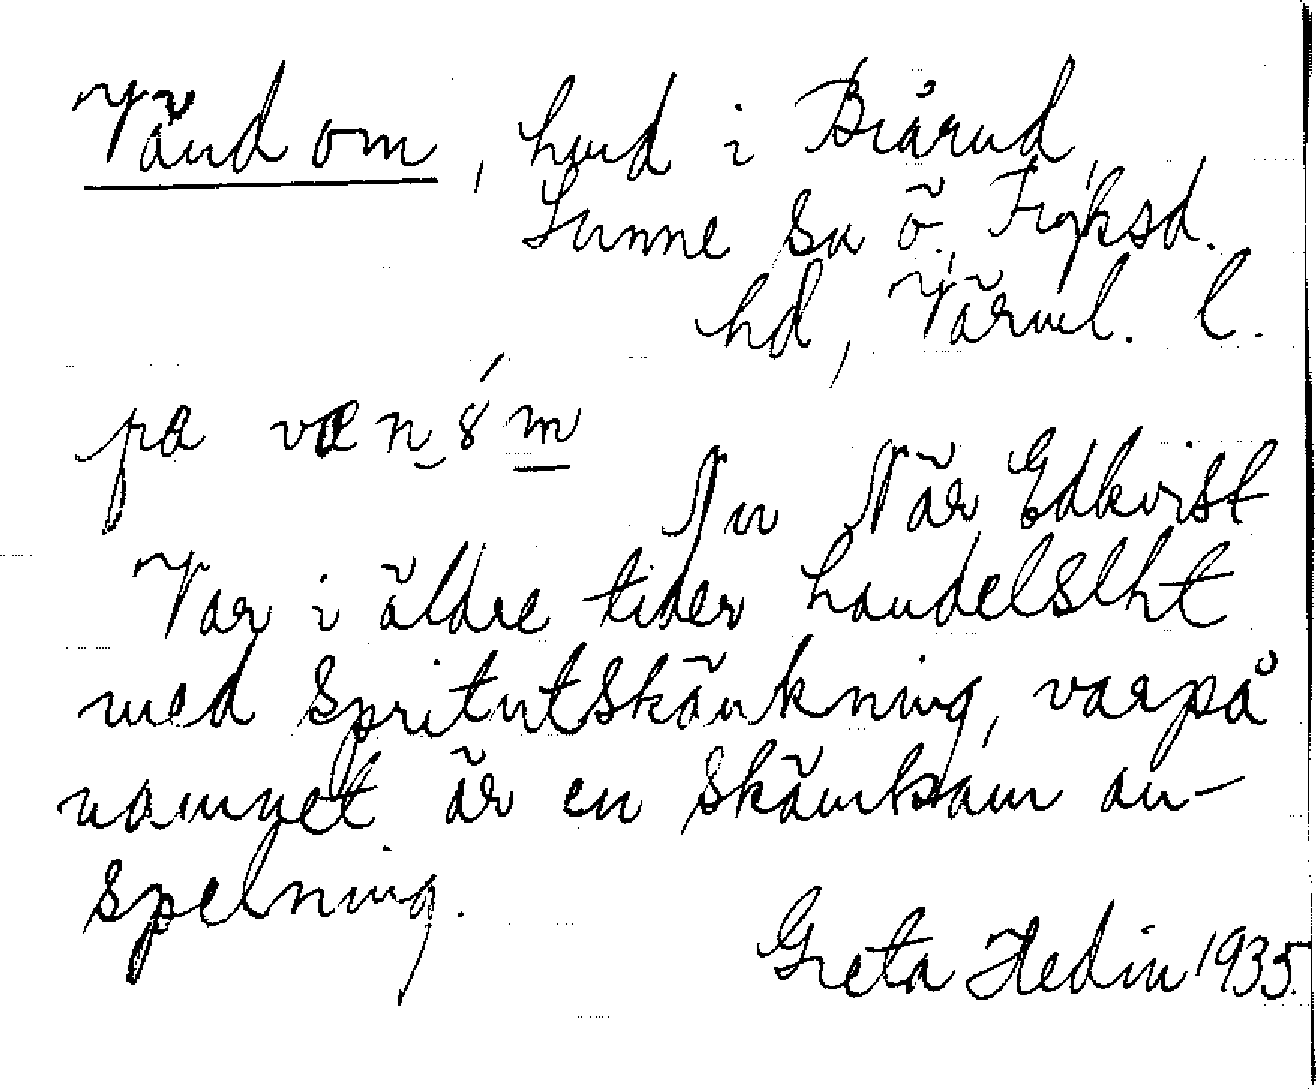 Vänd om, hmd i Brårud
Sunne sn ö. Fryksd.
hd, Värml. l.
pa væn ǫ́ m
Nu När Edkvist
Var i äldre tider handelslht
med spritutskänkning, varpå
namnet är en skämtsam an-
spelning.
Greta Hedin 1935.